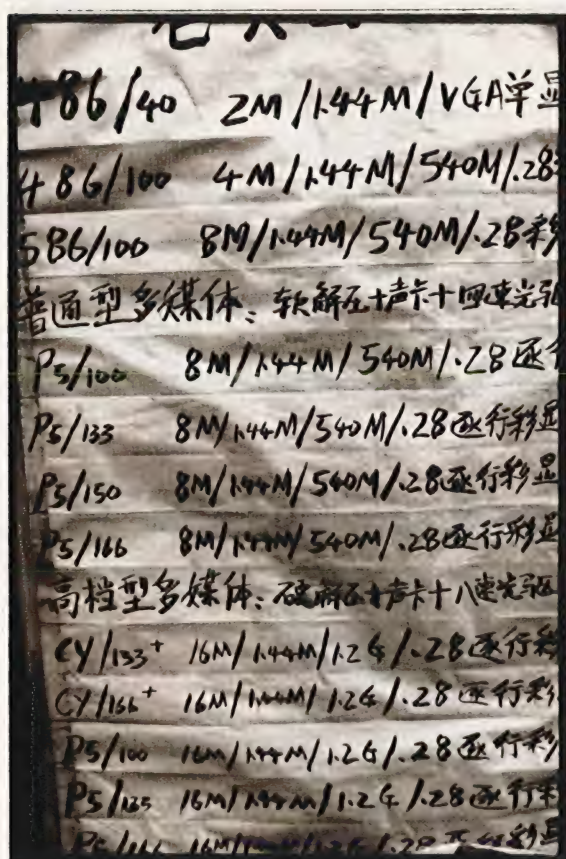 486/40 2M/1.44M/VGA单显
486/100 4M/1.44M/540M/.28
586/100 8M/1.44M/540M/.28彩
普通型多媒体：软解压+声卡+四速光驱
P5/100 8M/1.44M/540M/.28逐行
P5/133 8M/1.44M/540M/.28逐行彩显
P5/150 8M/1.44M/540M/.28逐行彩显
P5/166 8M/1.44M/540M/.28逐行彩显
高档型多媒体：硬解压+声卡+八速光驱
CY/133+ 16M/1.44M/1.2G/.28逐行彩
CY/166+ 16M/1.44M/1.2G/.28逐行彩
P5/100 16M/1.44M/1.2G/.28逐行彩
P5/133 16M/1.44M/1.2G/.28逐行彩
P5/166 16M/1.2G/.28逐行彩显